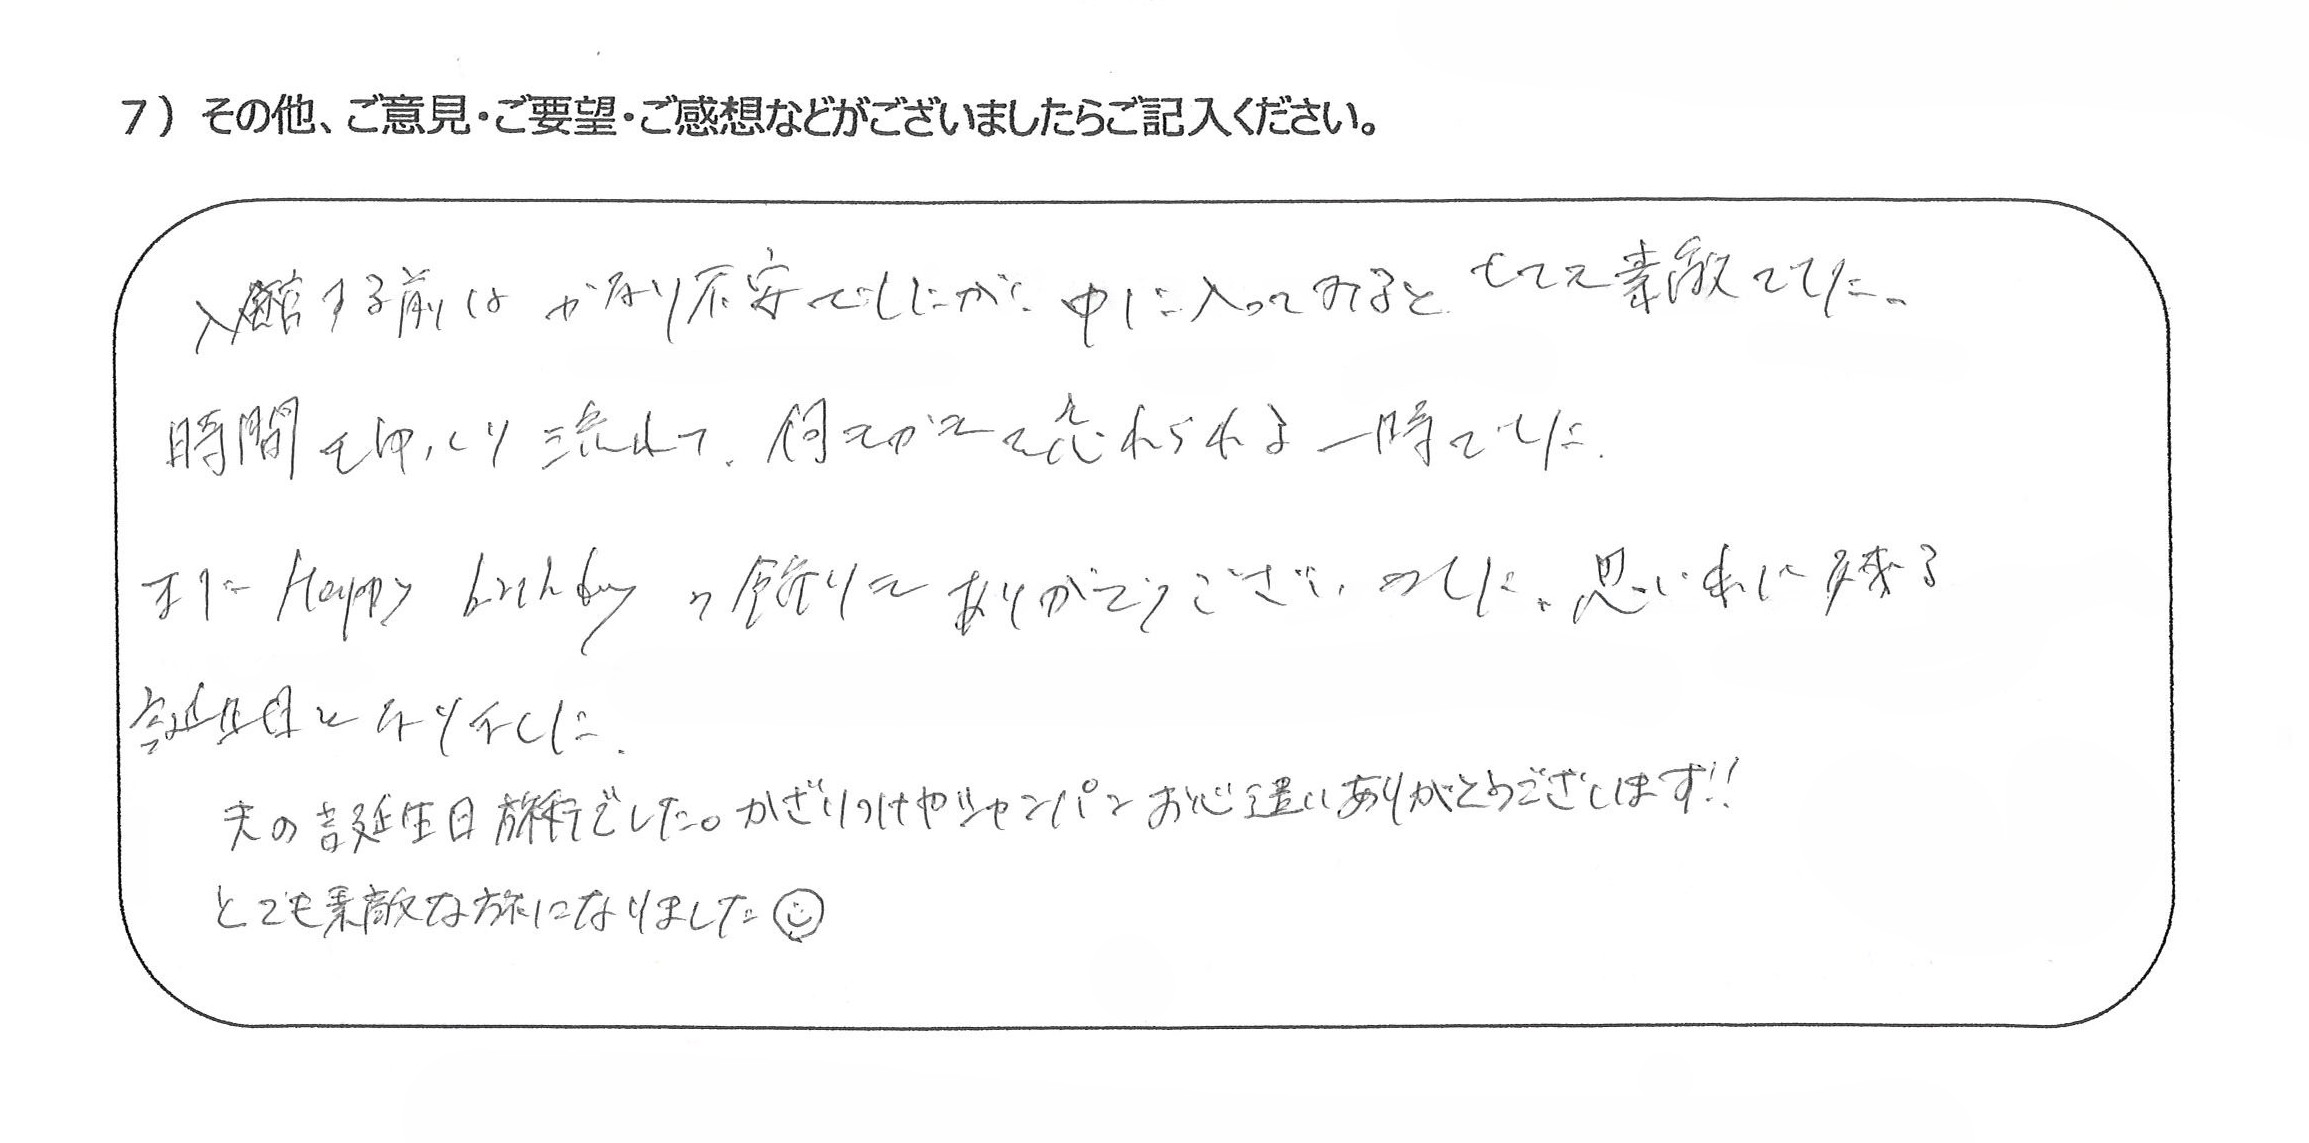 7）その他、ご意見・ご要望・ご感想などがございましたらご記入ください。
入館する前は かなり不安でしたが、中に入ってみると とても素敵でした。
時間もゆっくり流れて、何もかも忘れられる一時でした。
また Happy birthday の飾りも ありがとうございました。思い出に残る
誕生日となりました。
夫の誕生日旅行でした。かざりつけやシャンパンお心遣いありがとうございます!!
とても素敵な旅になりました☺